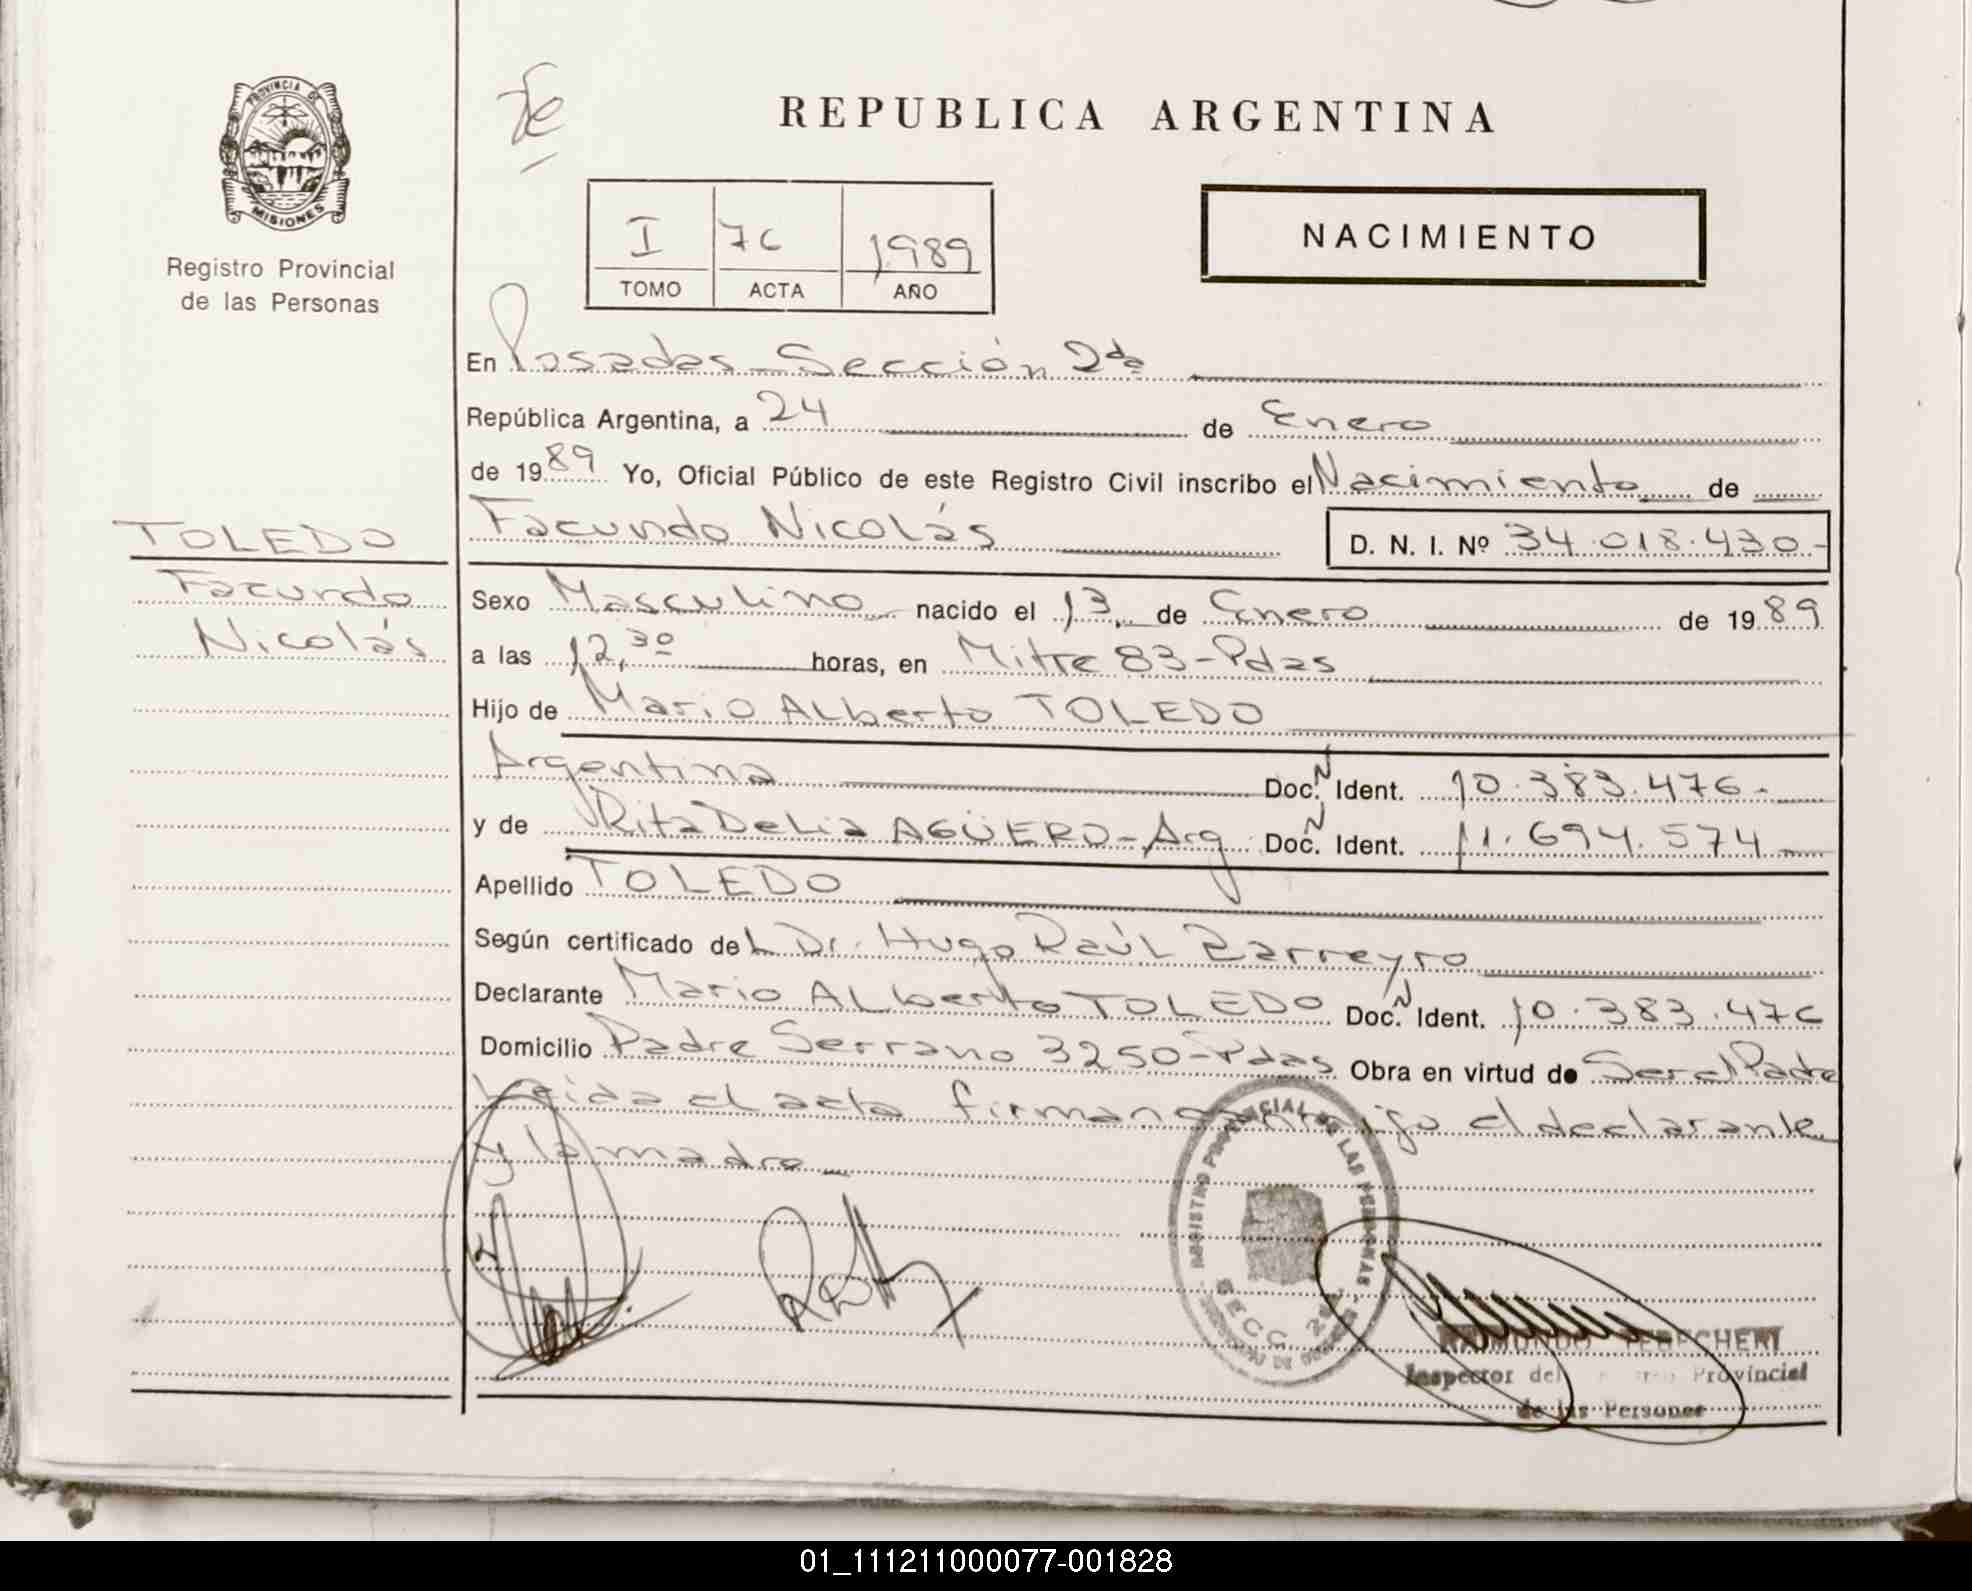 PROVINCIA DE
MISIONES
Registro Provincial
de las Personas
REPUBLICA ARGENTINA
I 76 1989
TOMO ACTA AÑO
NACIMIENTO
En Posadas - Sección 2da
República Argentina, a 24 de Enero
de 1989 Yo, Oficial Público de este Registro Civil inscribo el Nacimiento de
TOLEDO
Facundo
Nicolás
Facundo Nicolás D. N. I. Nº 34.018.430-
Sexo Masculino nacido el 13 de Enero de 1989
a las 12,30 horas, en Mitre 83 - Pdas
Hijo de Mario Alberto TOLEDO
Argentina Doc. N Ident. 10.383.476.-
y de Rita Delia AGÜERO - Arg Doc. N Ident. 11.694.574.-
Apellido TOLEDO
Según certificado del Dr. Hugo Raúl Barreyro
Declarante Mario Alberto TOLEDO Doc. N Ident. 10.383.476
Domicilio Padre Serrano 3250 - Pdas Obra en virtud de Ser el Padre
Leida el acta firman conmigo el declarante
y la madre
REGISTRO PROVINCIAL DE LAS PERSONAS
SECC. 2da
RAIMUNDO
Inspector del Provincial
de las Personas
01_111211000077-001828